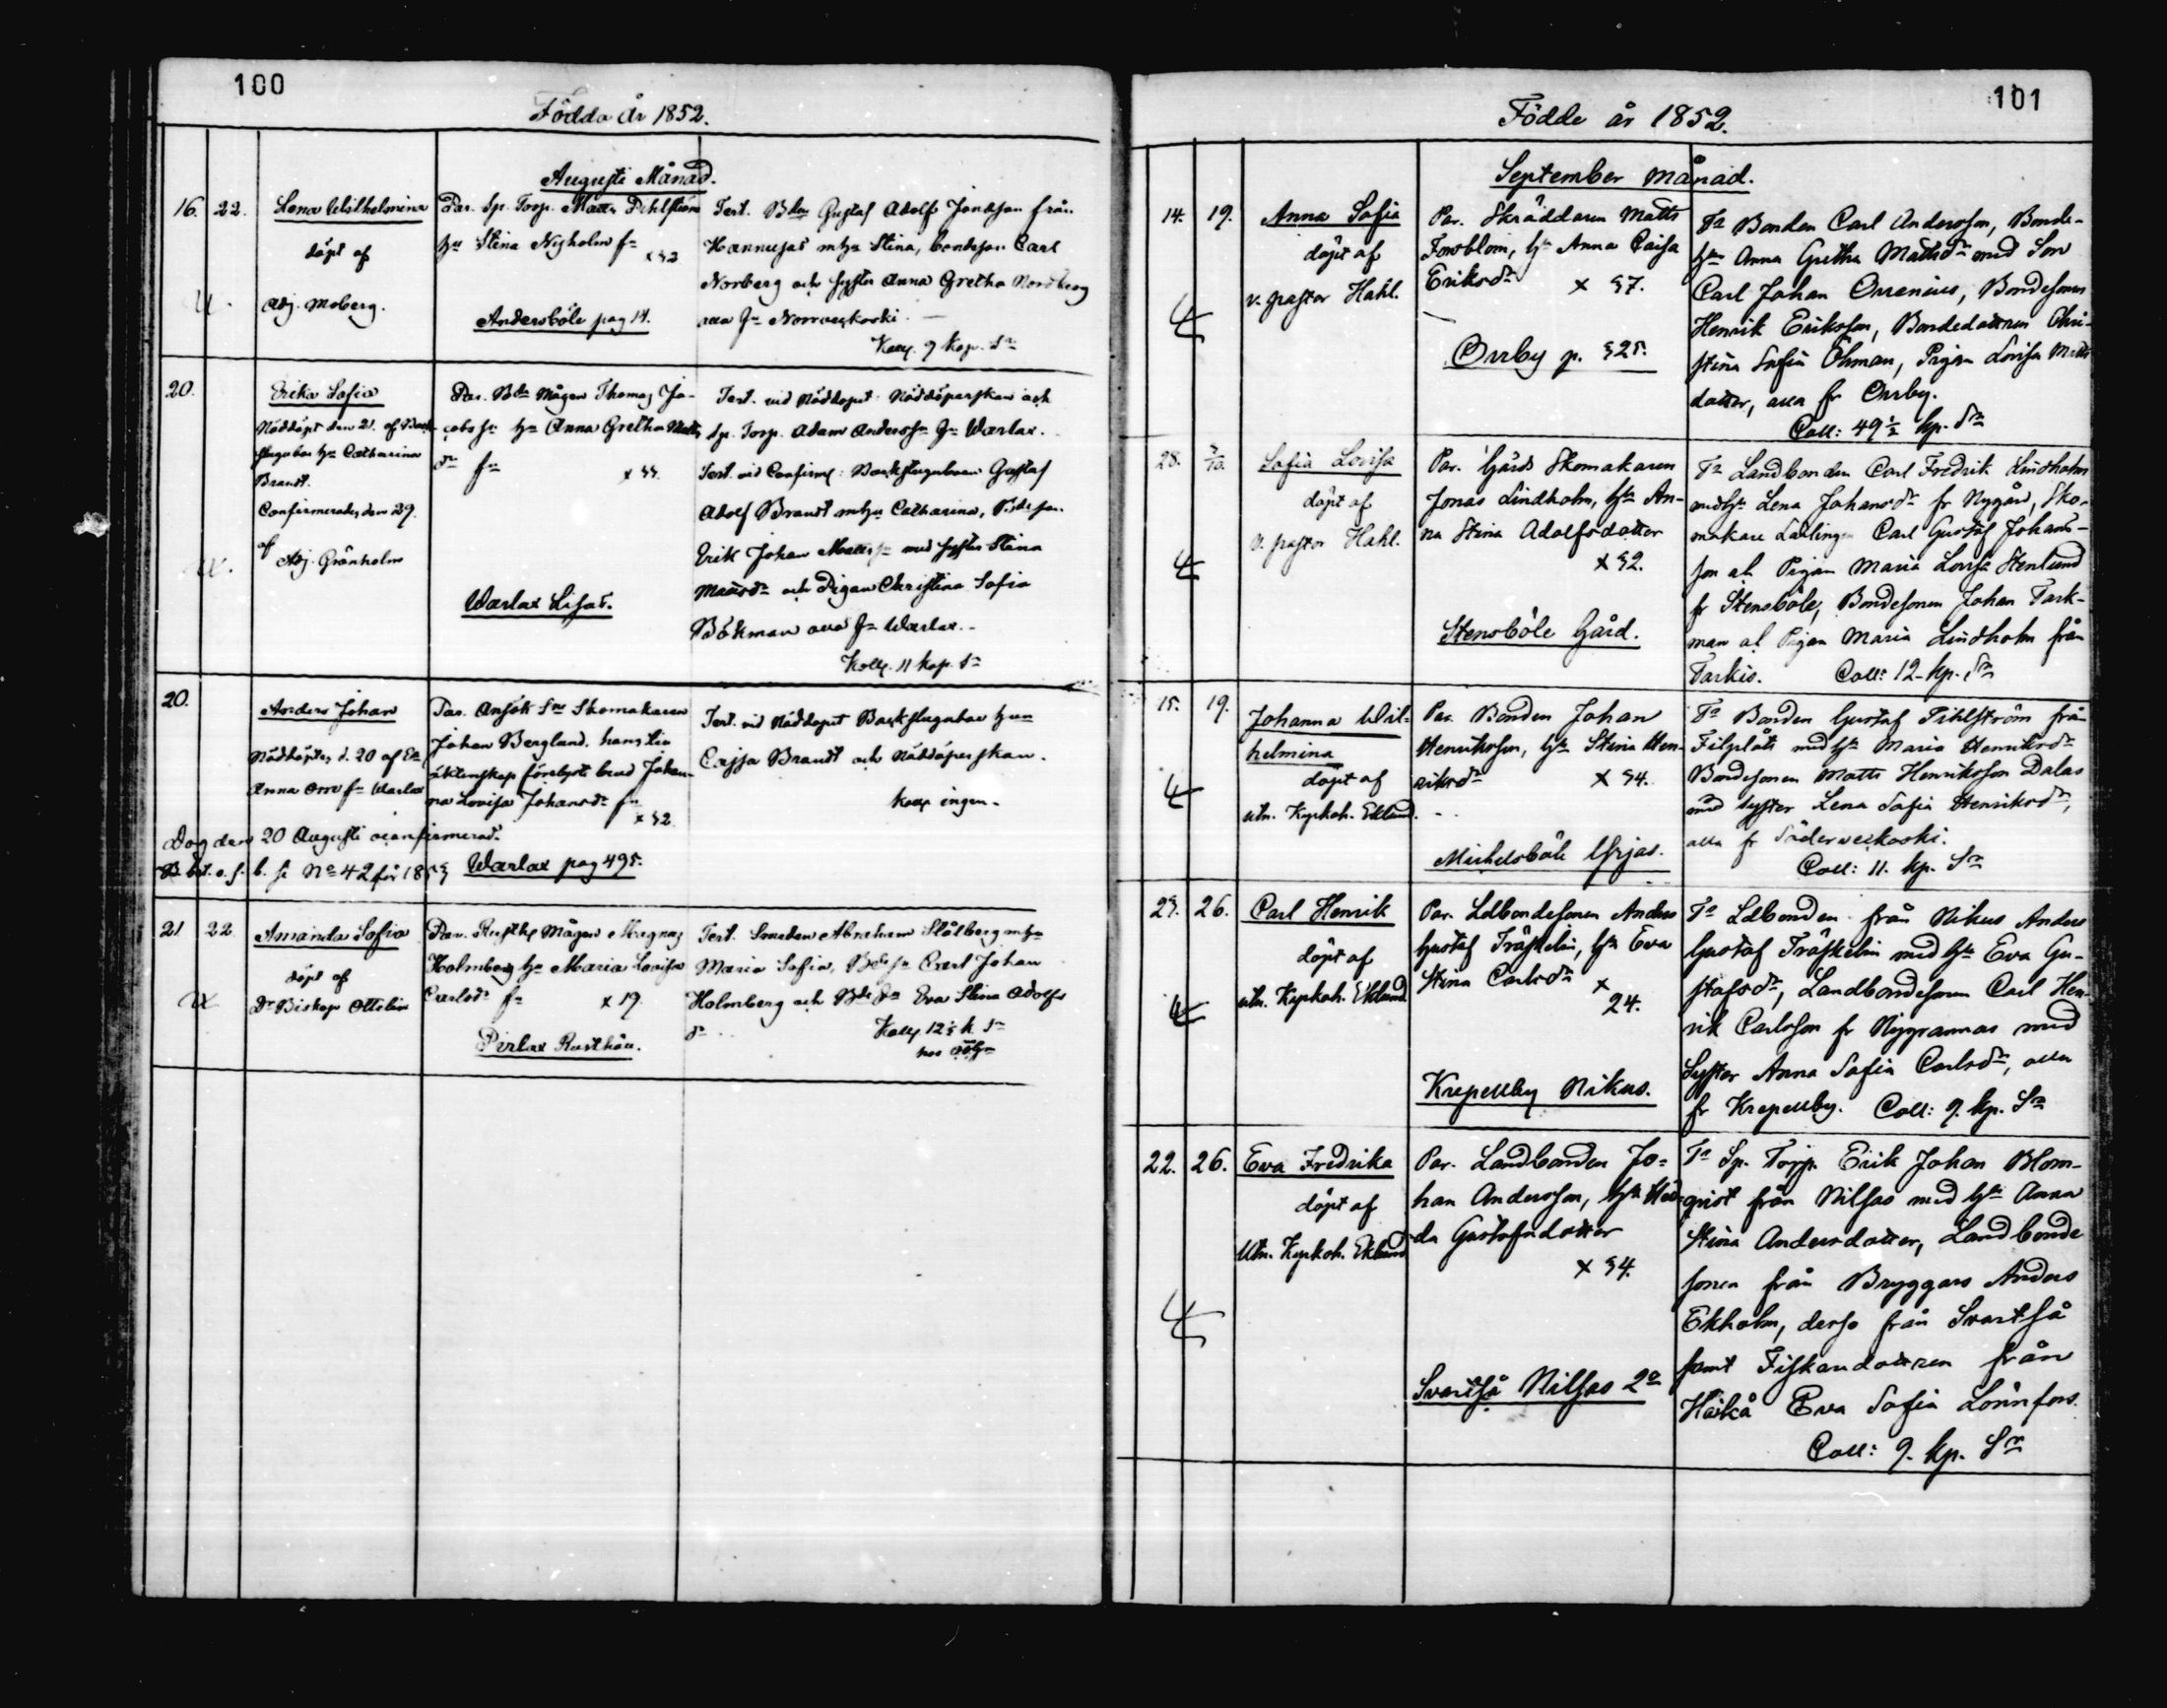 100
Födda År 1852.
Augusti Månad.
16. 22. Lena Wilhelmina
döpt af
Adj. Moberg.
Par. Sp. Torp. Matts Dihlström
hu Stina Nyholm fn
x 32
Andersböle pag 14.
Test. Bdn Gustaf Adolf Jonasson från
Hannusas m hu Stina, bondeson Carl
Norberg och syster Anna Gretha Nordberg
alla fn Norrveckoski.
Koll. 9 kop. Sr
20. Erika Sofia
Nöddöpt den 21. af Back-
stugubos hu Catharina
Brandt.
Confirmerades den 29.
af
Adj. Grönholm
Par. Bdn Mågen Thomas Ja-
cobs sn hu Anna Gretha Matts
dr fn x 33.
Warlax Lisas.
Test. vid Nöddopet: Nöddöperskan och
Sp. Torp. Adam Andersson fn Warlax.
Test. vid Confirm: Backstugubon Gustaf
Adolf Brandt m hu Catharina, Bdeson
Erik Johan Mattsson med syster Stina
Mattsdr och Pigan Christina Sofia
Bökman alla fn Warlax.
Koll. 11 kop. Sr
20. Anders Johan
Nöddöptes d. 20 af Ea
Anna Orre fn Warlax
Dog den 20 Augusti oconfirmerad.
b. se No 42 för 1853
Par. Ansök Sne Skomakaren
Johan Berglund, hans till
äktenskap förelyste brud Johan-
na Lovisa Johansdr fn
x 32
Warlax pag 495.
Test. vid Nöddopet Backstugubos hun
Cajsa Brandt och Nöddöperskan.
Koll. ingen.
21 22 Amanda Sofia
döpt af
Dr Biskop Ottelin
Par. Rusth. Mågen Magnus
Holmberg hu Maria Lovisa
Carlsdr fn x 19.
Pirlax Rusthåll.
Test. Smeden Abraham Stålberg m hu
Maria Sofia, Bdesn Carl Johan
Holmberg och Bdedn Eva Stina Adolfs
dr
Koll. 12½ k. Sr
101
Födde år 1852.
September månad.
14. 19. Anna Sofia
döpt af
v. pastor Hahl.
Par. Skräddaren Matts
Forsblom, hu Anna Caisa
Eriksdr x 37.
Orrby p. 325.
Tr Bonden Carl Andersson, Bonde-
hu Anna Gretha Mattsdr med Son
Carl Johan Orrenius, Bondesonen
Henrik Eriksson, Bondedottren Chri-
stina Sofia Öhman, Pigan Lovisa Matts
dotter, alla fr Orrby.
Coll: 49½ kp. Sr
28. 3/10. Sofia Lovisa
döpt af
v. pastor Hahl.
Par. Gårds Skomakaren
Jonas Lindholm, hu An-
na Stina Adolfsdotter
x 32.
Stensböle Gård.
Tr Landbonden Carl Fredrik Lindholm
med hu Lena Johansdr fr Nygård, Sko-
makare Lärlingen Carl Gustaf Johans-
son at Pigan Maria Lovisa Stenlund
fr Stensböle, Bondesonen Johan Tark-
man at Pigan Maria Lindholm från
Tarkis. Coll: 12 kp. Sr
15. 19. Johanna Wil-
helmina
döpt af
utn. Kyrkoh. Eklund.
Par. Bonden Johan
Henriksson, hu Stina Hen-
riksdr x 34.
Michelsböle Grjas.
Tr Bonden Gustaf Tihlström från
Filpplåts med hu Maria Henriksdr
Bondesonen Matts Henriksson Dalas
med syster Lena Sofia Henriksdr,
alla fr Söderveckoski.
Coll: 11. kp. Sr
23. 26. Carl Henrik
döpt af
utn. Kyrkoh. Eklund
Par. Ldbondesonen Anders
Gustaf Träskelin, hu Eva
Stina Carlsdr x
24.
Krepellby Nikus.
Tr Ldbonden från Nikus Anders
Gustaf Träskelin med hu Eva Gu-
stafsdr, Landbondesonen Carl Hen-
rik Carlsson fr Nygrannas med
Syster Anna Sofia Carlsdr, alla
fr Krepellby. Coll: 9. kp. Sr
22. 26. Eva Fredrika
döpt af
Utn. Kyrkoh. Eklund
Par. Landbonden Jo-
han Andersson, hu Hed-
da Gustafsdotter
x 34.
Svartså Nilsas 2o
Tr Sp. Torp. Erik Johan Blom-
qvist från Nilsas med hu Anna
Stina Andersdotter, Landbonde
sonen från Bryggars Anders
Ekholm, derso från Svartså
samt Fiskaredottren från
Haikå Eva Sofia Lönnfors.
Coll: 9. kp. Sr